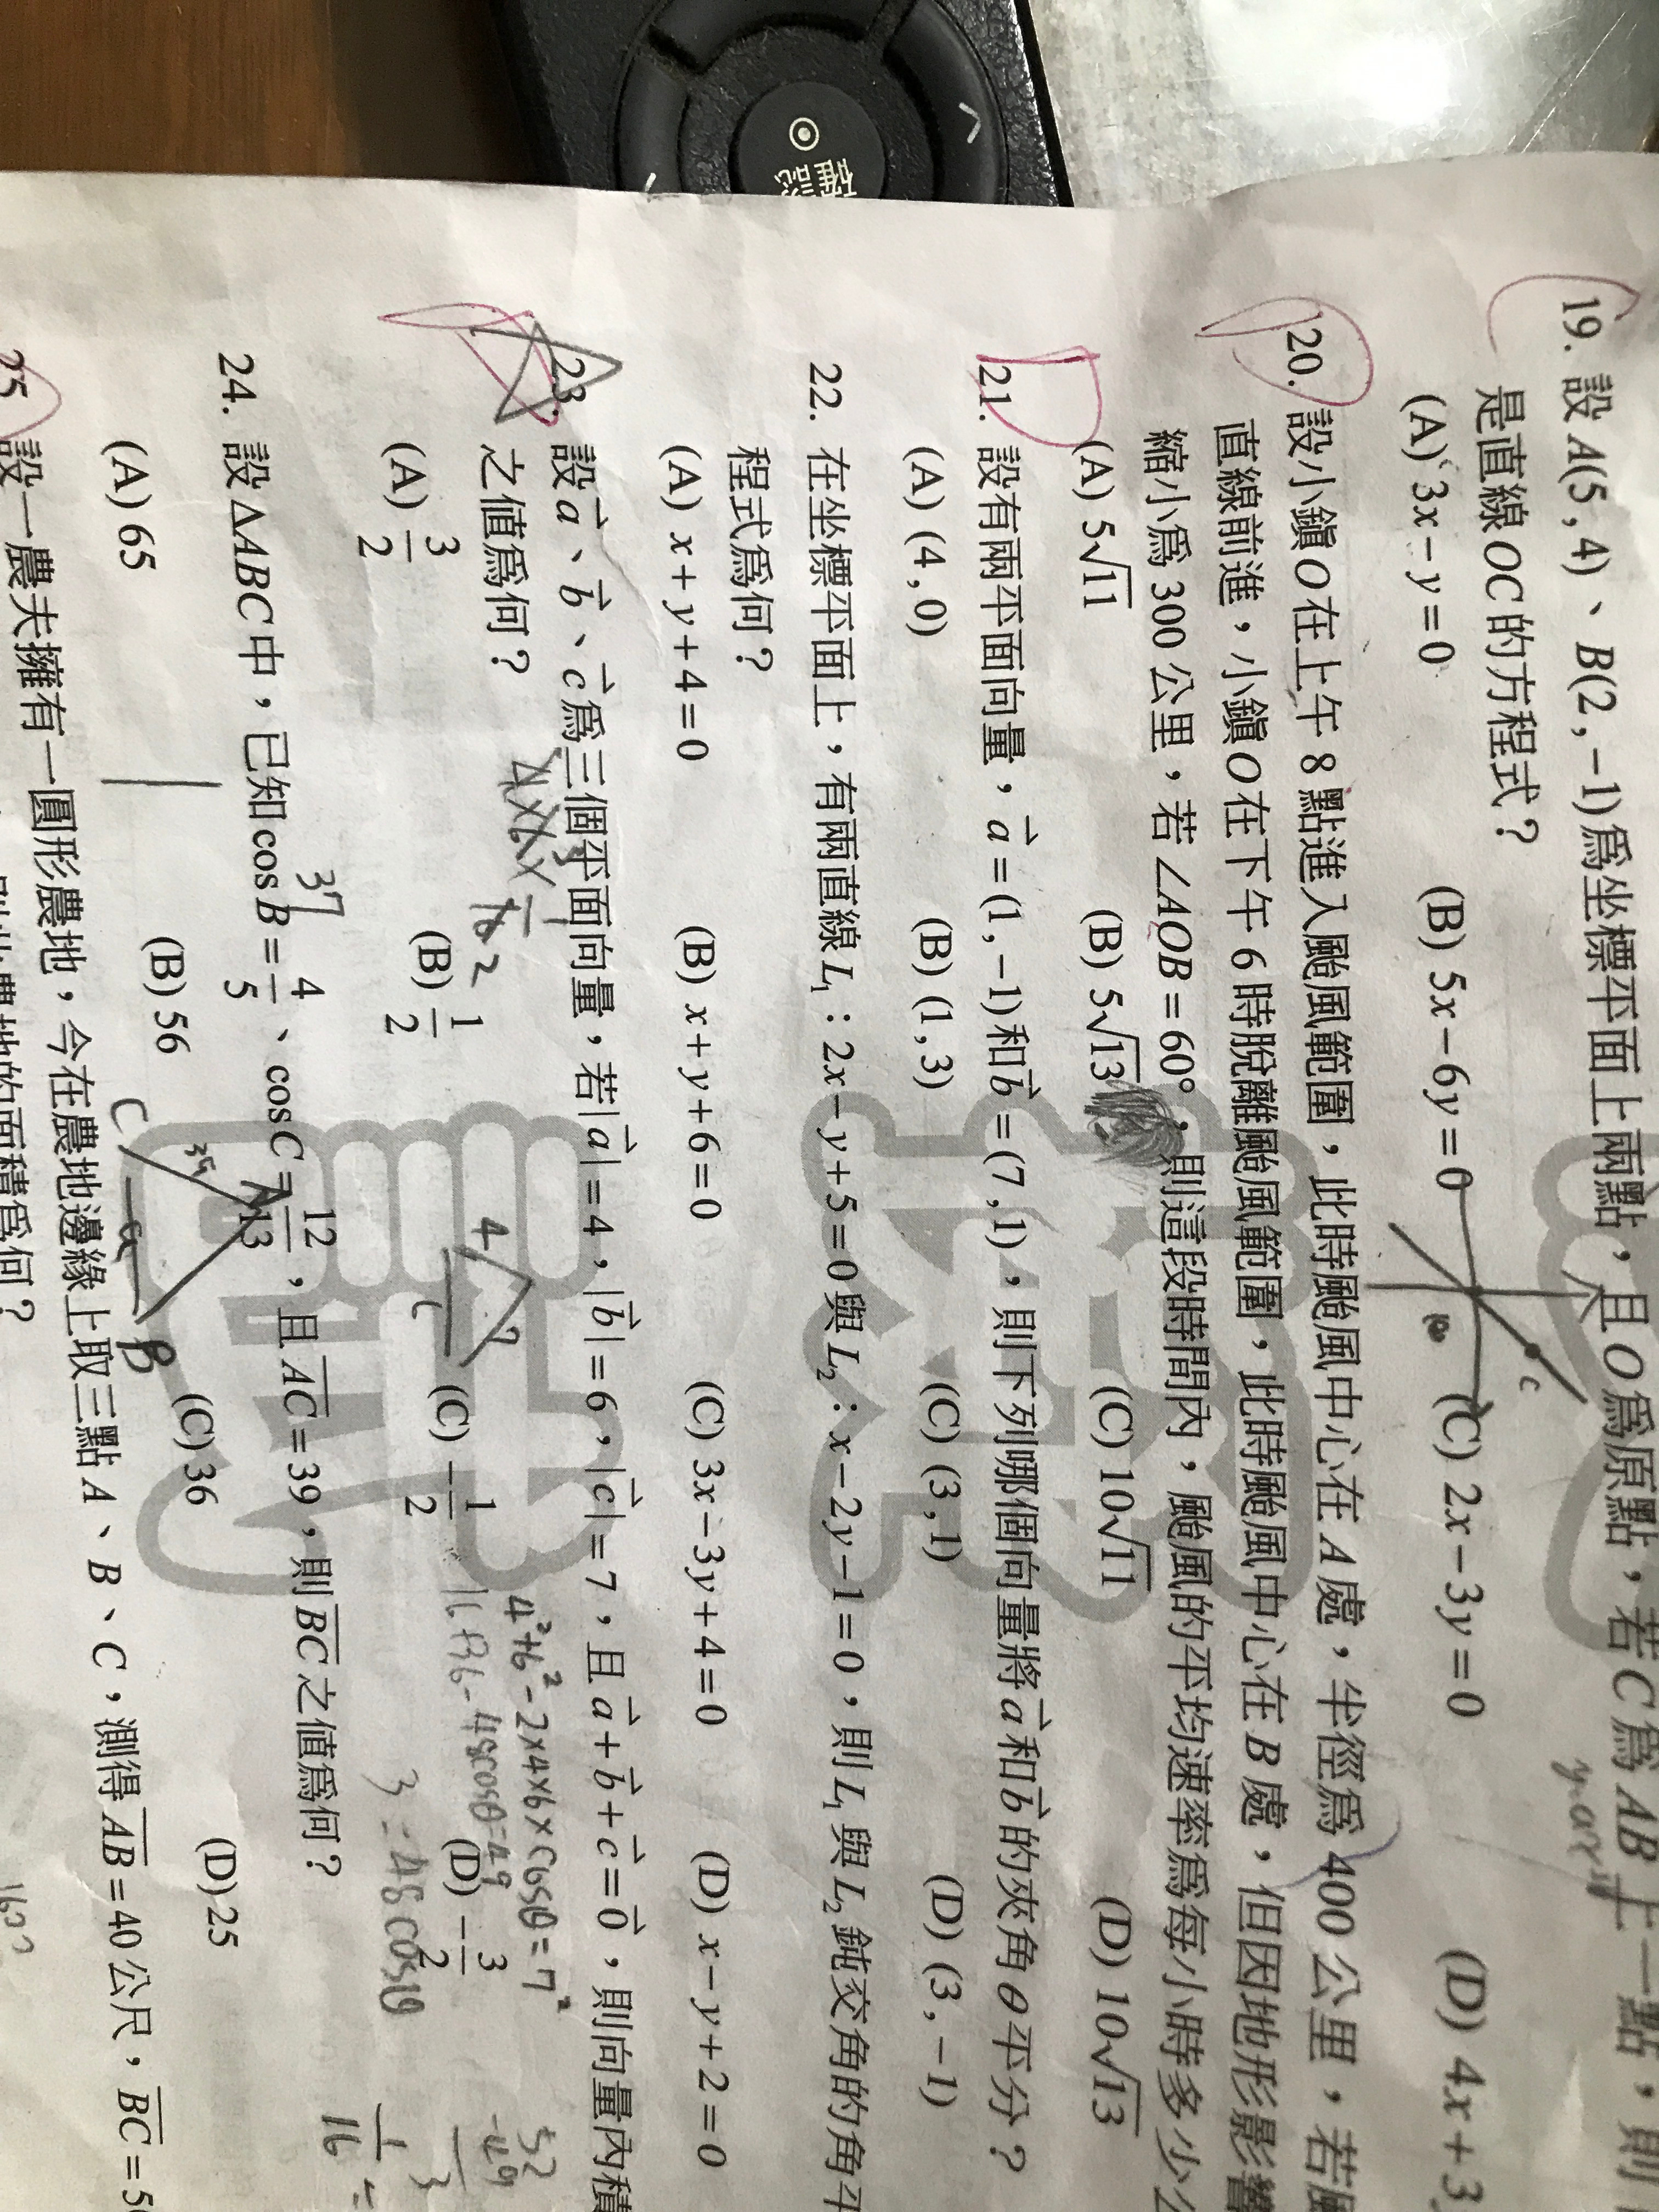 確認
19. 設 A(5,4)、B(2,-1)為坐標平面上兩點，且 O 為原點，若 C 為 AB 上一點，則
是直線 OC 的方程式？
(A) 3x-y=0 (B) 5x-6y=0 (C) 2x-3y=0 (D) 4x+3
C
20. 設小鎮 O 在上午 8 點進入颱風範圍，此時颱風中心在 A 處，半徑為 400 公里，若
直線前進，小鎮 O 在下午 6 時脫離颱風範圍，此時颱風中心在 B 處，但因地形影響
縮小為 300 公里，若 ∠AOB=60°，則這段時間內，颱風的平均速率為每小時多少公
(A) 5√11 (B) 5√13 (C) 10√11 (D) 10√13
21. 設有兩平面向量，a⃗=(1,-1)和b⃗=(7,1)，則下列哪個向量將a⃗和b⃗的夾角θ平分？
(A) (4,0) (B) (1,3) (C) (3,1) (D) (3,-1)
22. 在坐標平面上，有兩直線 L₁：2x-y+5=0 與 L₂：x-2y-1=0，則 L₁ 與 L₂ 鈍交角的角平
程式為何？
(A) x+y+4=0 (B) x+y+6=0 (C) 3x-3y+4=0 (D) x-y+2=0
23. 設a⃗、b⃗、c⃗為三個平面向量，若|a⃗|=4，|b⃗|=6，|c⃗|=7，且a⃗+b⃗+c⃗=0⃗，則向量內積
之值為何？
4²+6²-2×4×6×cosθ=7²
16+36-48cosθ=49
(A) 3/2 (B) 1/2 (C) -1/2 (D) -3/2
3=48cosθ
52
-49
3
1/16
24. 設 ΔABC 中，已知 cos B=4/5、cos C=12/13，且 AC=39，則 BC 之值為何？
37
A
39
C
a
B
(A) 65 (B) 56 (C) 36 (D) 25
25 設一農夫擁有一圓形農地，今在農地邊緣上取三點 A、B、C，測得 AB=40 公尺，BC=50